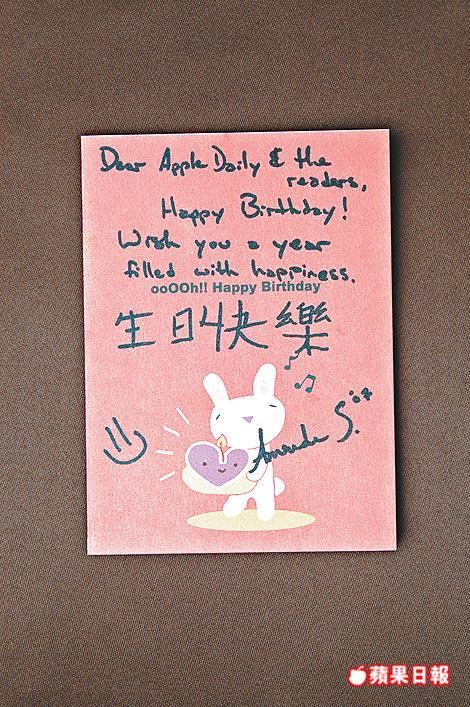 Dear Apple Daily & the
readers,
Happy Birthday!
Wish you a year
filled with happiness.
ooOOh!! Happy Birthday
生日快樂
Amanda S.
蘋果日報